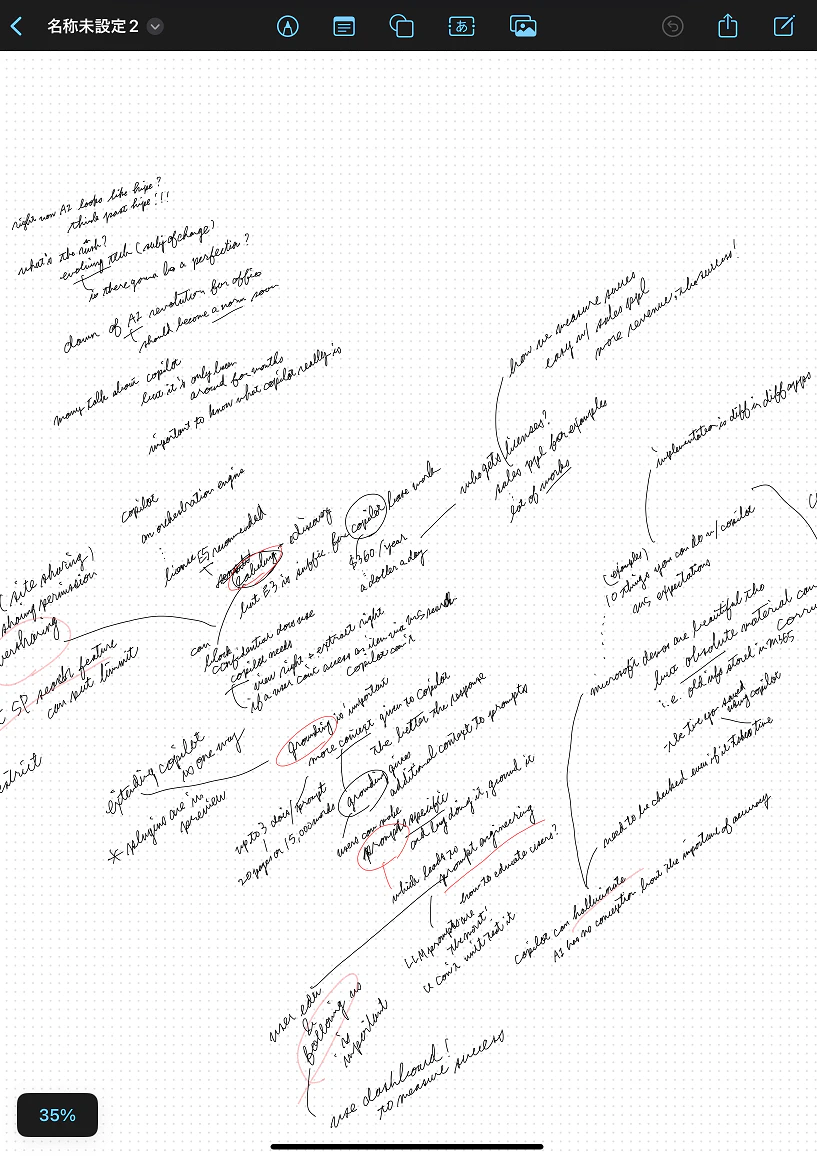 名称未設定 2
right now AI looks like hype?
think past hype!!!
what's the rush?
evolving tech (subj of change)
is there gonna be a perfection?
dawn of AI revolution for office
should become a norm soon
many talk about copilot
but it's only been
around for months
important to know what copilot really is
copilot
an orchestration engine
license E5 recommended
labeling + ediscovery
but E3 is suffic. for copilot base work
$360/year
a dollar a day
who gets licenses?
sales ppl for examples
lot of works
how we measure succes
easy w/ sales ppl
more revenue, the success!
implementation is diff in diff apps
(examples)
10 things you can do w/ copilot
MS expectations
microsoft demos are beautiful tho
but obsolete material can
i.e. old info stored in M365
file I've saved
using copilot
need to be checked even if it takes time
copilot can hallucinate
AI has no conception about the importance of accuracy
(site sharing)
sharing permission
oversharing
SP search feature
can put limit
can
block
confidential docs use
copilot needs
view right + extract right
if a user can't access an item via MS search
copilot can't
grounding is important
more context given to copilot
the better the response
grounding gives
additional context to prompts
up to 3 docs/prompt
20 pages or 15,000 words
users can make
prompts specific
and by doing it, ground it
which leads to
prompt engineering
how to educate users?
LLM prompts are
the novel!
u can't unit test it
extending copilot
is one way
* plugins are in
preview
user edu
&
following up
is
important
use dashboard!
to measure success
35%